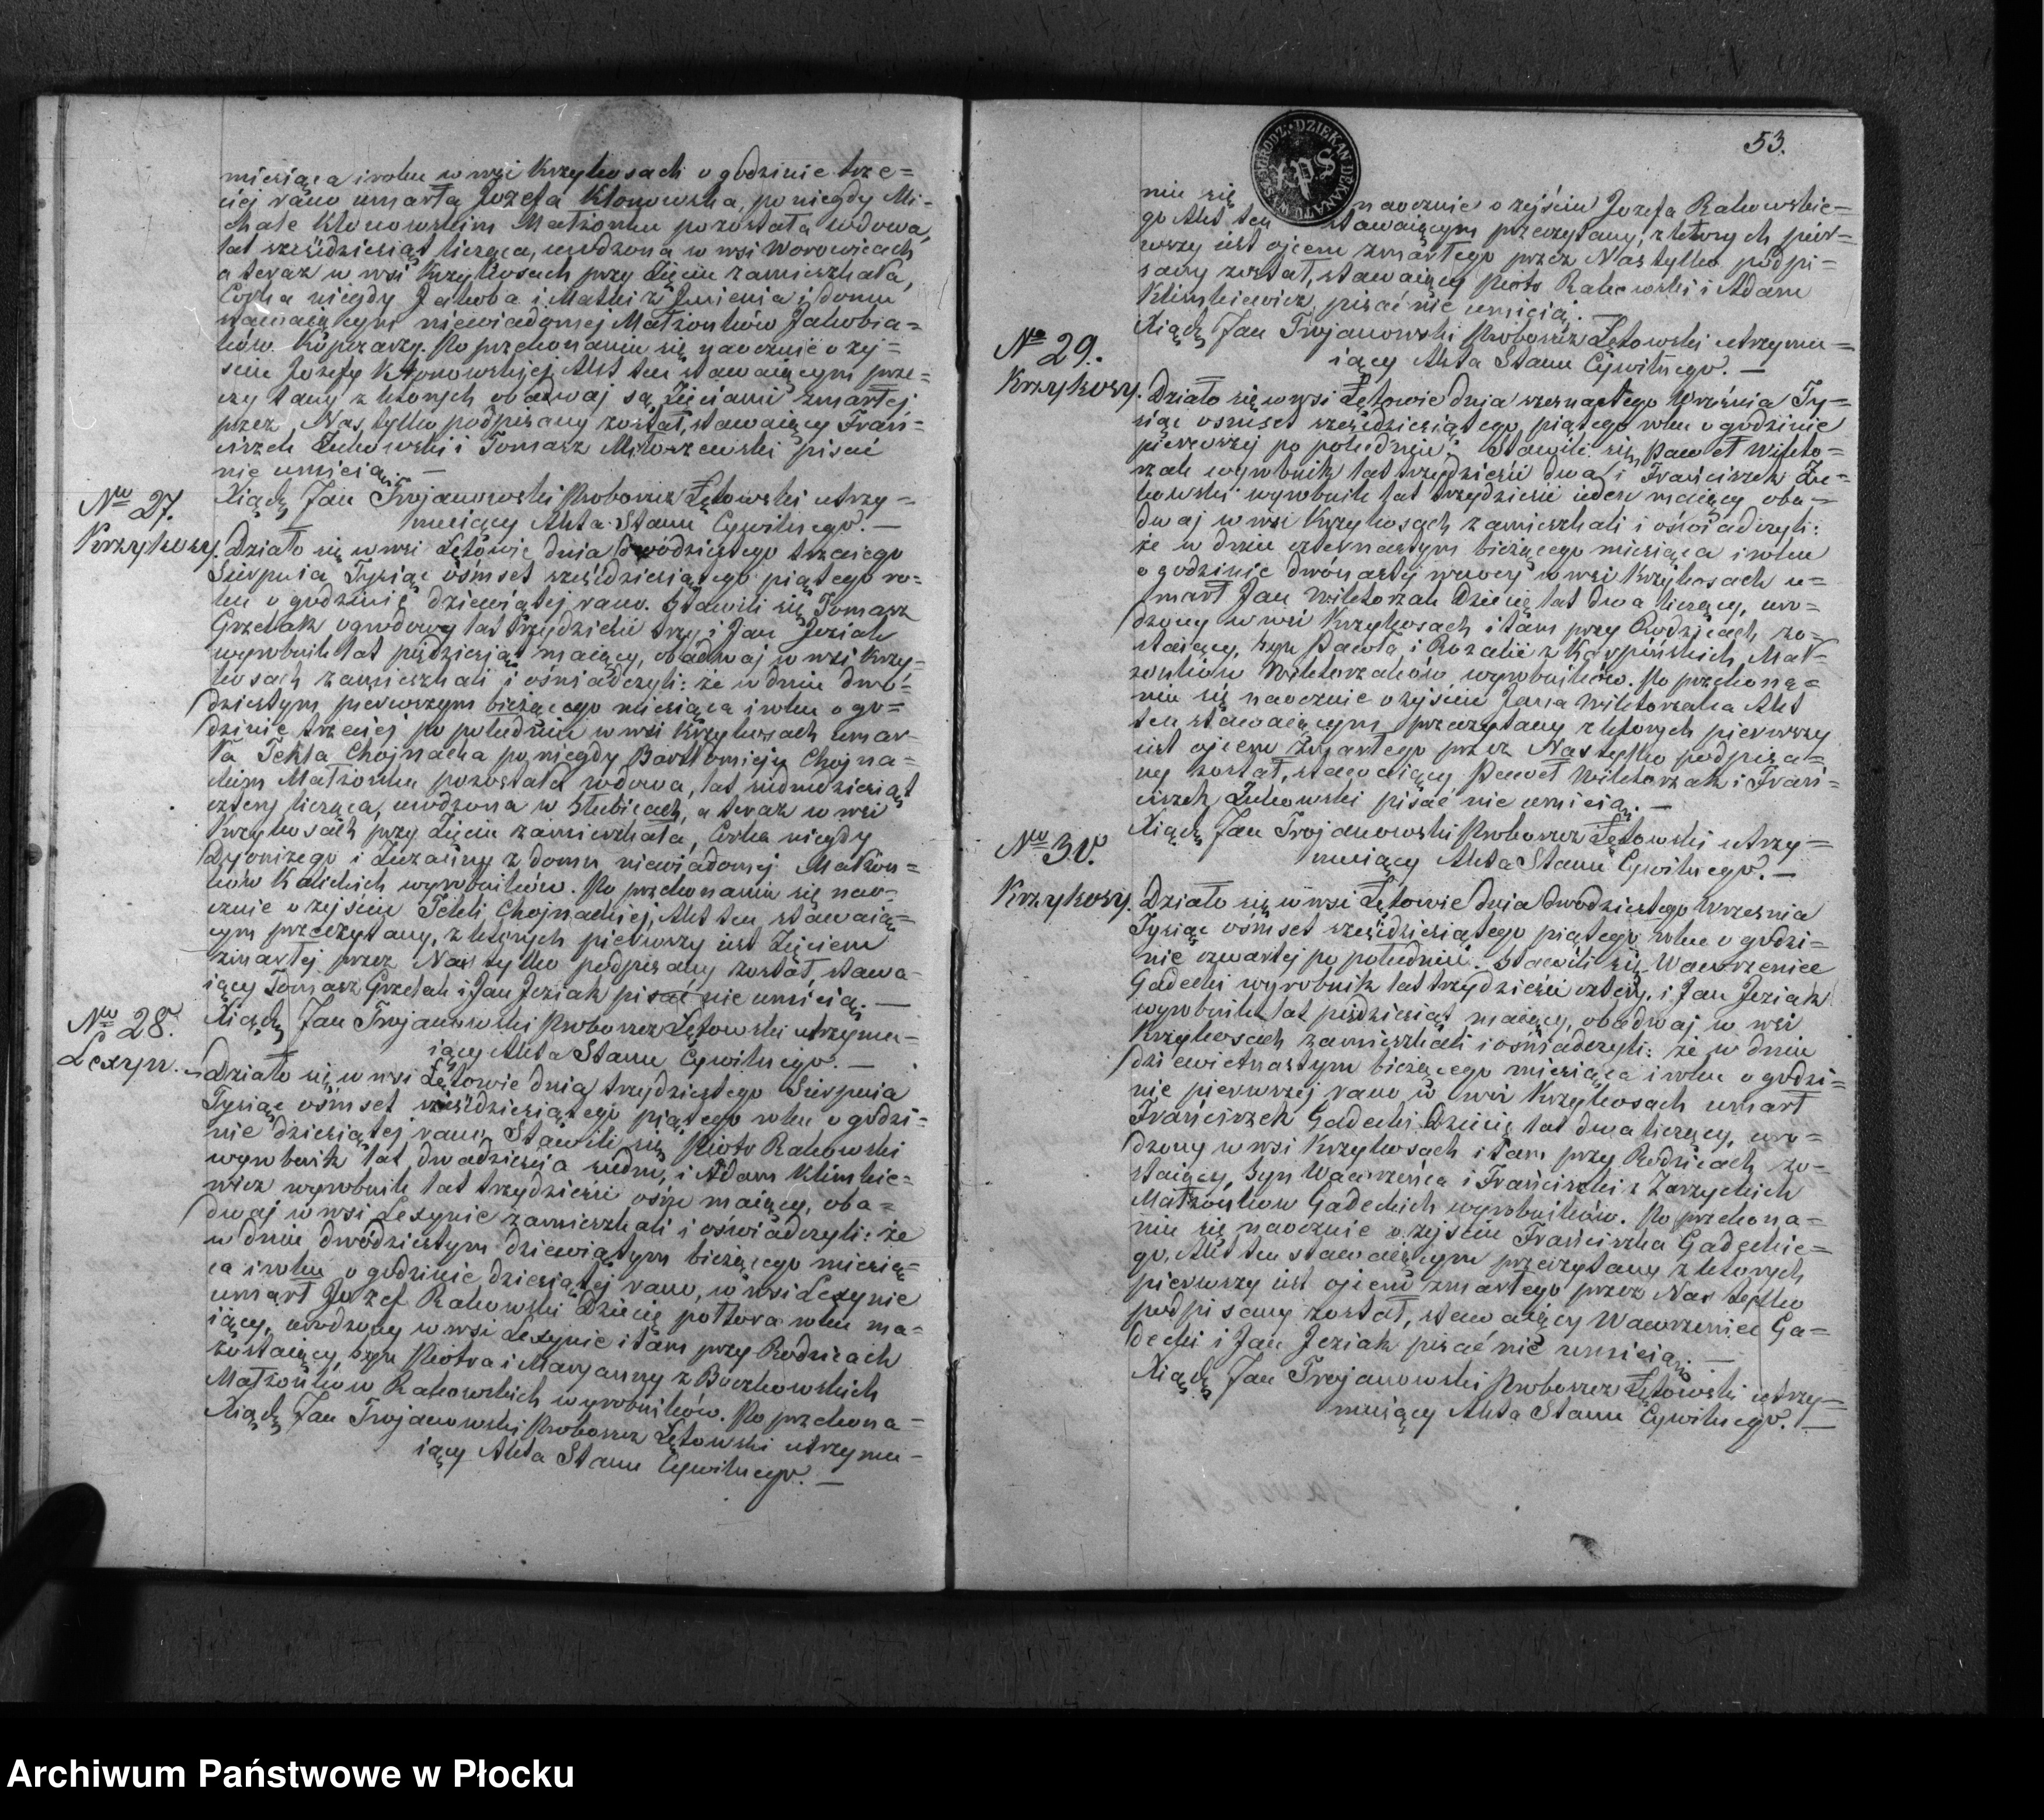 miesiąca i roku w wsi Krzykosach o godzinie trze=
ciej rano umarła Józefa Kłonowska, po niegdy Mi-
chale Kłonowskim Małżonku pozostała wdowa,
lat sześćdziesiąt licząca, urodzona w wsi Worowicach
a teraz w wsi Krzykosach przy Zięciu zamieszkała,
Corka niegdy Jakoba i Matki z Imienia i domu
niewiadomej Małżonków Jakobia=
ków Kopczarzy. Po przekonaniu się naocznie o zej=
ściu Józefy Kłonowskiej, Akt ten stawaiącym prze=
czytany z których obadwaj są Zięciami zmarłej
przez Nas tylko podpisany został, stawaiący Fran=
ciszek Żukowski i Tomasz Miłoszewski pisać
nie umieią. —
Xiądz Jan Trojanowski Proboszcz Łętowski utrzy=
muiący Akta Stanu Cywilnego. —
No 27.
Krzykosy.
Działo się w wsi Łętowie dnia dwódziestego trzeciego
Sierpnia Tysiąc ośmset sześćdziesiątego piątego ro=
ku o godzinie dziewiątej rano. Stawili się Tomasz
Grzelak ogrodowy lat trzydzieści trzy i Jan Jeziak
wyrobnik lat pięćdziesiąt maiący, obadwaj w wsi Krzy=
kosach zamieszkali i oświadczyli: że w dniu dwó=
dziestym pierwszym bieżącego miesiąca i roku o go=
dzinie trzeciej po południu w wsi Krzykosach umar-
ła Tekla Chojnacka po niegdy Bartłomieju Chojna=
ckim Małżonku pozostała wdowa, lat siedmdziesiąt
cztery licząca, urodzona w Słubicach, a teraz w wsi
Krzykosach przy Zięciu zamieszkała, Corka niegdy
Dyonizego i Zuzanny z domu niewiadomej Małżon=
ków Kalickich wyrobników. Po przekonaniu się nao=
cznie o zejściu Tekli Chojnackiej, Akt ten stawaią=
cym przeczytany, z których pierwszy iest Zięciem
zmarłej przez Nas tylko podpisany został, stawa=
iący Tomasz Grzelak i Jan Jeziak pisać nie umieią. —
Xiądz Jan Trojanowski Proboszcz Łętowski utrzymu=
iący Akta Stanu Cywilnego. —
No 28.
Lexyn.
Działo się w wsi Łętowie dnia trzydziestego Sierpnia
Tysiąc ośmset sześćdziesiątego piątego roku o godzi=
nie dziesiątej rano, Stawili się Piotr Rakowski
wyrobnik lat dwadzieścia siedm, i Adam Klimkie=
wicz wyrobnik lat trzydzieści ośm maiący, oba=
dwaj w wsi Lexynie zamieszkali i oświadczyli: że
w dniu dwódziestym dziewiątym bieżącego miesią=
ca i roku o godzinie dziesiątej rano, w wsi Lexynie
umarł Jozef Rakowski Dziecię półtora roku ma=
iący, urodzony w wsi Lexynie i tam przy Rodzicach
zostaiący, syn Piotra i Maryanny z Boczkowskich
Małżonków Rakowskich wyrobników. Po przekona=
Xiądz Jan Trojanowski Proboszcz Łętowski utrzymu=
iący Akta Stanu Cywilnego. —
53.
niu się naocznie o zejściu Jozefa Rakowskie=
go Akt ten stawaiącym przeczytany, z których pier=
wszy iest ojcem zmarłego przez Nas tylko podpi=
sany został, stawaiący Piotr Rakowski i Adam
Klimkiewicz pisać nie umieią. —
Xiądz Jan Trojanowski Proboszcz Łętowski utrzymu=
iący Akta Stanu Cywilnego. —
No 29.
Krzykosy.
Działo się w wsi Łętowie dnia szesnastego Września Ty=
siąc ośmset sześćdziesiątego piątego roku o godzinie
pierwszej po południu. Stawili się Paweł Wikto=
rzak wyrobnik lat trzydzieści dwa i Franciszek Żu=
kowski wyrobnik lat trzydzieści ieden maiący oba=
dwaj w wsi Krzykosach zamieszkali i oświadczyli:
że w dniu czternastym bieżącego miesiąca i roku
o godzinie dwónastej w nocy w wsi Krzykosach u=
marł Jan Wiktorzak Dziecię lat dwa liczący, uro=
dzony w wsi Krzykosach i tam przy Rodzicach zo=
staiący, syn Pawła i Rozalii z Karpińskich Mał=
żonków Wiktorzaków wyrobników. Po przekona=
niu się naocznie o zejściu Jana Wiktorzaka Akt
ten stawaiącym przeczytany z których pierwszy
iest ojcem zmarłego przez Nas tylko podpisa=
ny został, stawaiący Paweł Wiktorzak i Fran=
ciszek Żukowski pisać nie umieią. —
Xiądz Jan Trojanowski Proboszcz Łętowski utrzy=
muiący Akta Stanu Cywilnego. —
No 30.
Krzykosy.
Działo się w wsi Łętowie dnia dwódziestego Września
Tysiąc ośmset sześćdziesiątego piątego roku o godzi=
nie czwartej po południu. Stawili się Wawrzeniec
Gadecki wyrobnik lat trzydzieści cztery, i Jan Jeziak
wyrobnik lat pięćdziesiąt maiący, obadwaj w wsi
Krzykosach zamieszkali i oświadczyli: że w dniu
dziewietnastym bieżącego miesiąca i roku o godzi=
nie pierwszej rano w wsi Krzykosach umarł
Franciszek Gadecki Dziecię lat dwa liczący, uro=
dzony w wsi Krzykosach i tam przy Rodzicach zo=
staiący, syn Wawrzeńca i Franciszki z Zarzyckich
Małżonków Gadeckich wyrobników. Po przekona=
niu się naocznie o zejściu Franciszka Gadeckie=
go, Akt ten stawaiącym przeczytany z których
pierwszy iest ojcem zmarłego przez Nas tylko
podpisany został, stawaiący Wawrzeniec Ga=
decki i Jan Jeziak pisać nie umieią. —
Xiądz Jan Trojanowski Proboszcz Łętowski utrzy=
muiący Akta Stanu Cywilnego. —
Archiwum Państwowe w Płocku